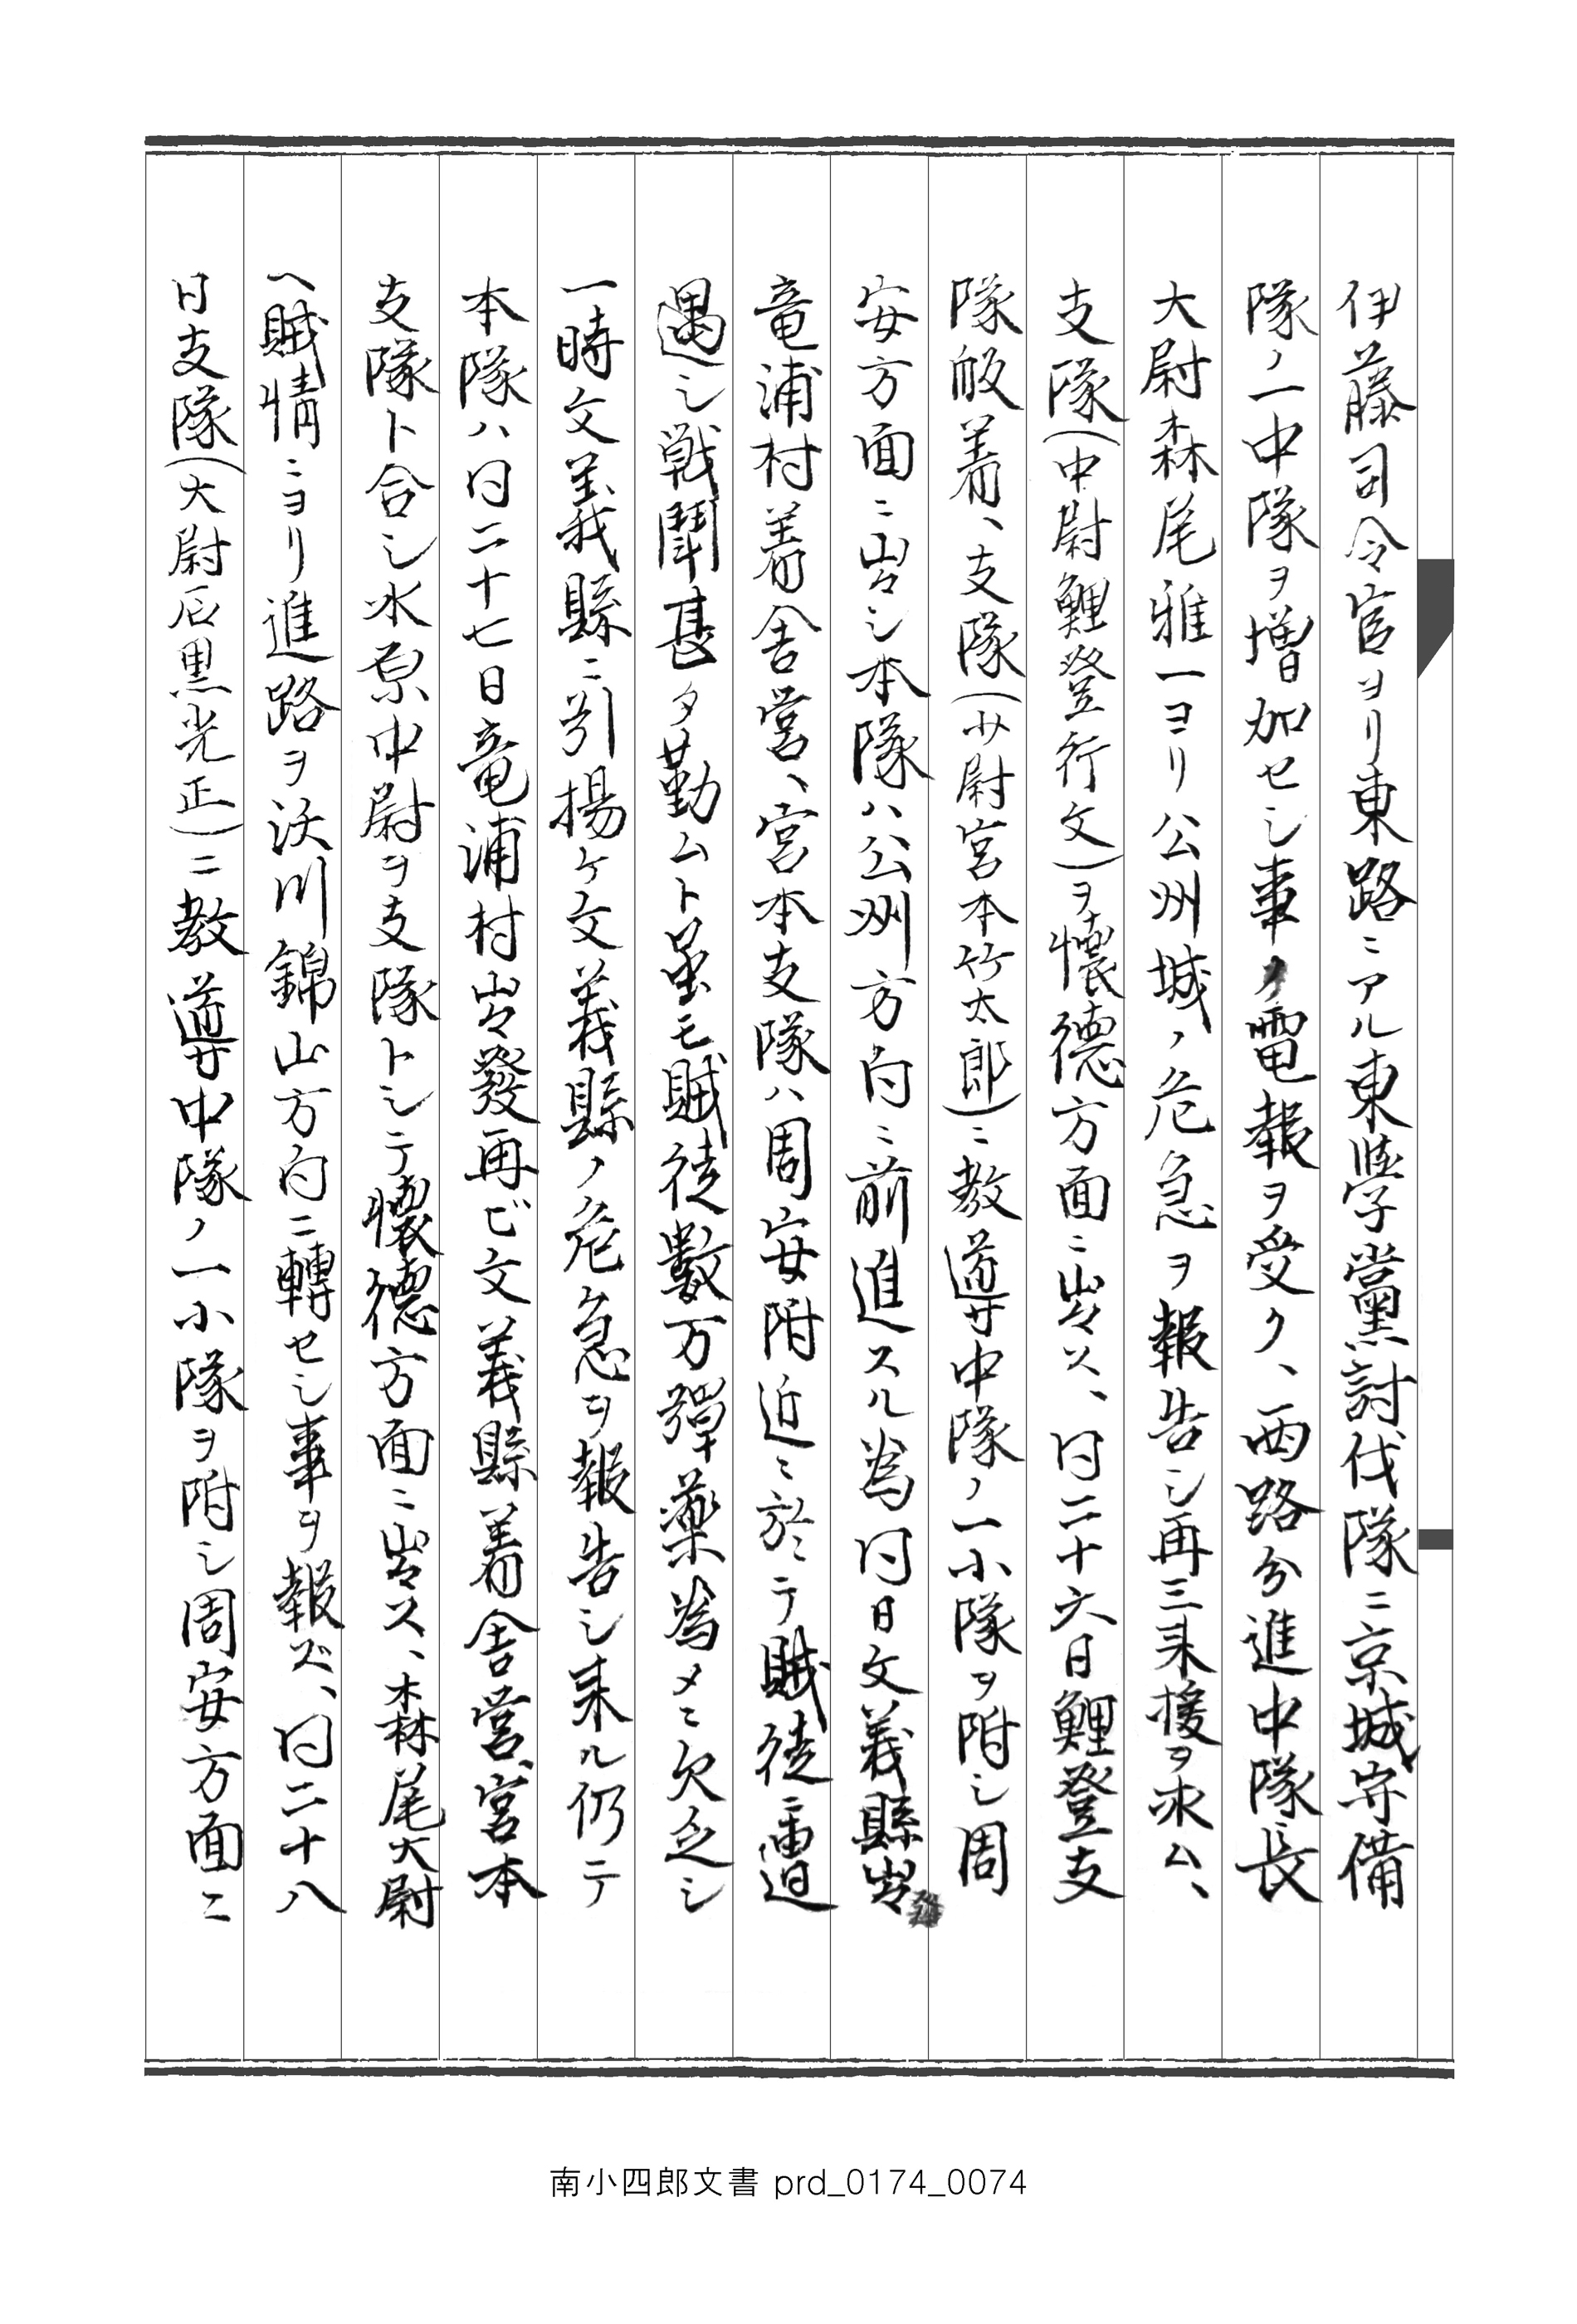 伊藤司令官ヨリ東路ニアル東學黨討伐隊ニ京城守備
隊ノ一中隊ヲ増加セシ事ノ電報ヲ受ク、西路分進中隊長
大尉森尾雅一ヨリ公州城ノ危急ヲ報告シ再三来援ヲ求ム、
支隊(中尉鯉登行文)ヲ懐徳方面ニ出ス、同二十六日鯉登支
隊皈着、支隊(少尉宮本竹太郎)ニ教導中隊ノ一小隊ヲ附シ周
安方面ニ出シ本隊ハ公州方向ニ前進スル為同日文義縣出發
竜浦村着舎営、宮本支隊ハ周安附近ニ於テ賊徒ニ遭
遇シ戦鬪甚タ勤ムト虽モ賊徒數万弾薬為メニ欠乏シ
一時文義縣ニ引揚ケ文義縣ノ危急ヲ報告シ来ル仍テ
本隊ハ同二十七日竜浦村出發再ビ文義縣着舎営、宮本
支隊ト合シ水原中尉ヲ支隊トシテ懐徳方面ニ出ス、森尾大尉
ヘ賊情ニヨリ進路ヲ沃川錦山方向ニ轉セシ事ヲ報ズ、同二十八
日支隊(大尉石黒光正)ニ教導中隊ノ一小隊ヲ附シ周安方面ニ
南小四郎文書 prd_0174_0074